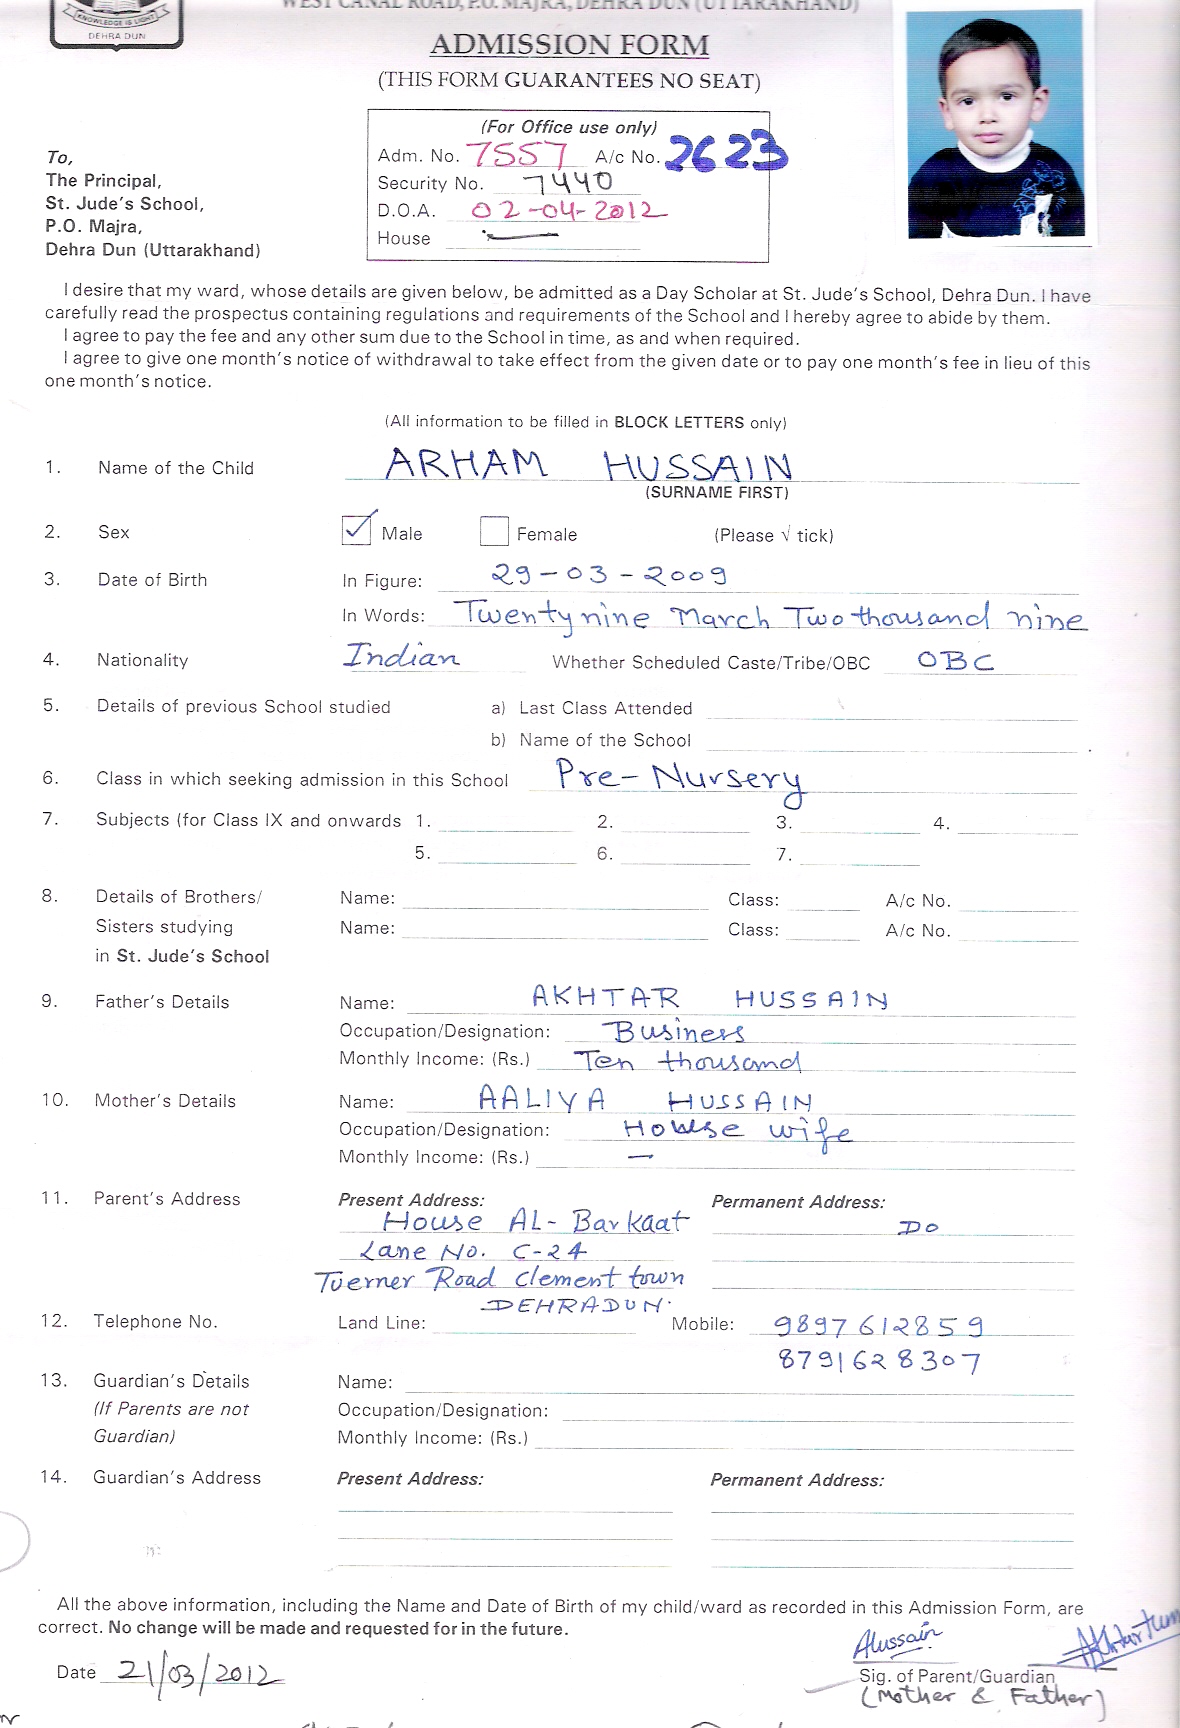 WEST CANAL ROAD, P.O. MAJRA, DEHRA DUN (UTTARAKHAND)
KNOWLEDGE IS LIGHT
DEHRA DUN
ADMISSION FORM
(THIS FORM GUARANTEES NO SEAT)
(For Office use only)
Adm. No. 7557 A/c No. 2623
Security No. 7440
D.O.A. 02-04-2012
House —
To,
The Principal,
St. Jude's School,
P.O. Majra,
Dehra Dun (Uttarakhand)
I desire that my ward, whose details are given below, be admitted as a Day Scholar at St. Jude's School, Dehra Dun. I have
carefully read the prospectus containing regulations and requirements of the School and I hereby agree to abide by them.
I agree to pay the fee and any other sum due to the School in time, as and when required.
I agree to give one month's notice of withdrawal to take effect from the given date or to pay one month's fee in lieu of this
one month's notice.
(All information to be filled in BLOCK LETTERS only)
1. Name of the Child ARHAM HUSSAIN
(SURNAME FIRST)
2. Sex ✓ Male Female (Please √ tick)
3. Date of Birth In Figure: 29-03-2009
In Words: Twenty nine March Two thousand nine
4. Nationality Indian Whether Scheduled Caste/Tribe/OBC OBC
5. Details of previous School studied a) Last Class Attended
b) Name of the School
6. Class in which seeking admission in this School Pre-Nursery
7. Subjects (for Class IX and onwards 1. 2. 3. 4.
5. 6. 7.
8. Details of Brothers/ Name: Class: A/c No.
Sisters studying Name: Class: A/c No.
in St. Jude's School
9. Father's Details Name: AKHTAR HUSSAIN
Occupation/Designation: Business
Monthly Income: (Rs.) Ten thousand
10. Mother's Details Name: AALIYA HUSSAIN
Occupation/Designation: House wife
Monthly Income: (Rs.) —
11. Parent's Address Present Address: Permanent Address:
House AL-Barkaat DO
Lane No. C-24
Tuerner Road Clement town
DEHRADUN.
12. Telephone No. Land Line: Mobile: 9897612859
8791628307
13. Guardian's Details Name:
(If Parents are not Occupation/Designation:
Guardian) Monthly Income: (Rs.)
14. Guardian's Address Present Address: Permanent Address:
All the above information, including the Name and Date of Birth of my child/ward as recorded in this Admission Form, are
correct. No change will be made and requested for in the future.
AHussain
Date 21/03/2012 Sig. of Parent/Guardian
(Mother & Father)